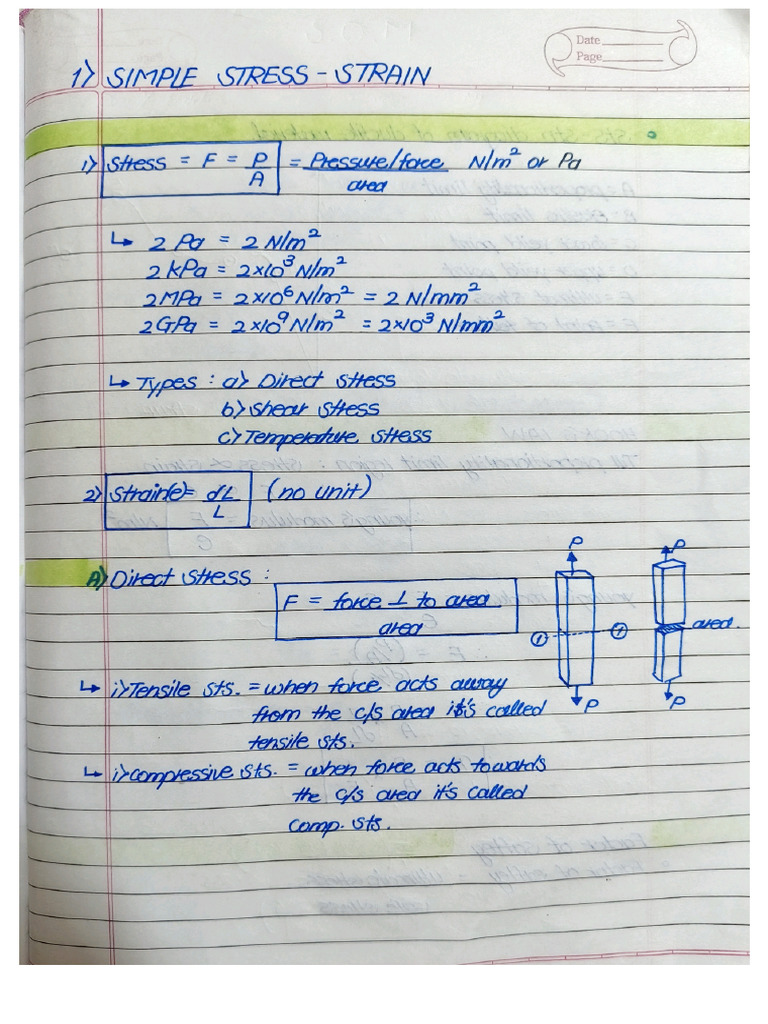 Date
Page
1) SIMPLE STRESS - STRAIN
1) Stress = F = P/A = Pressure/force / area N/m² or Pa
↳ 2 Pa = 2 N/m²
2 kPa = 2×10³ N/m²
2 MPa = 2×10⁶ N/m² = 2 N/mm²
2 GPa = 2×10⁹ N/m² = 2×10³ N/mm²
↳ Types : a) Direct stress
b) Shear stress
c) Temperature stress
2) Strain(e) = dL/L (no unit)
A) Direct stress :
F = force ⊥ to area / area
P
P
1
1
area.
P
P
↳ i) Tensile sts. = when force acts away
from the c/s area it's called
tensile sts.
↳ i) compressive sts. = when force acts towards
the c/s area it's called
comp. sts.